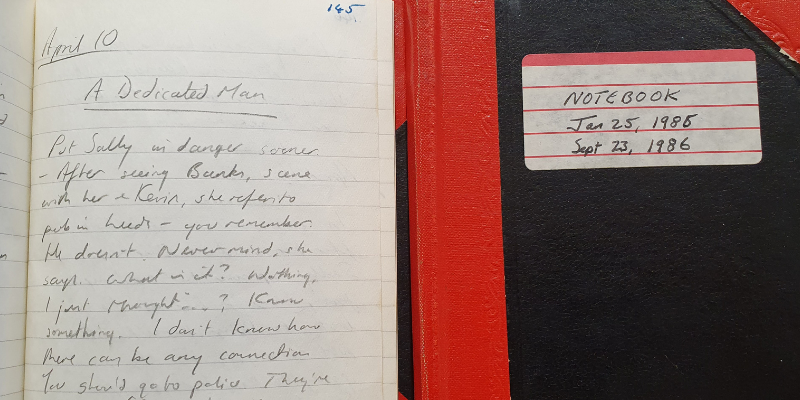 145
April 10
A Dedicated Man
Put Sally in danger sooner.
- After seeing Banks, scene
with her & Kevin, she refers to
pub in Leeds - you remember.
He doesn't. Never mind, she
says. What is it? Nothing,
I just thought ...? Know
something. I don't know how
there can be any connection
You should go to police They're
NOTEBOOK
Jan 25, 1985
Sept 23, 1986